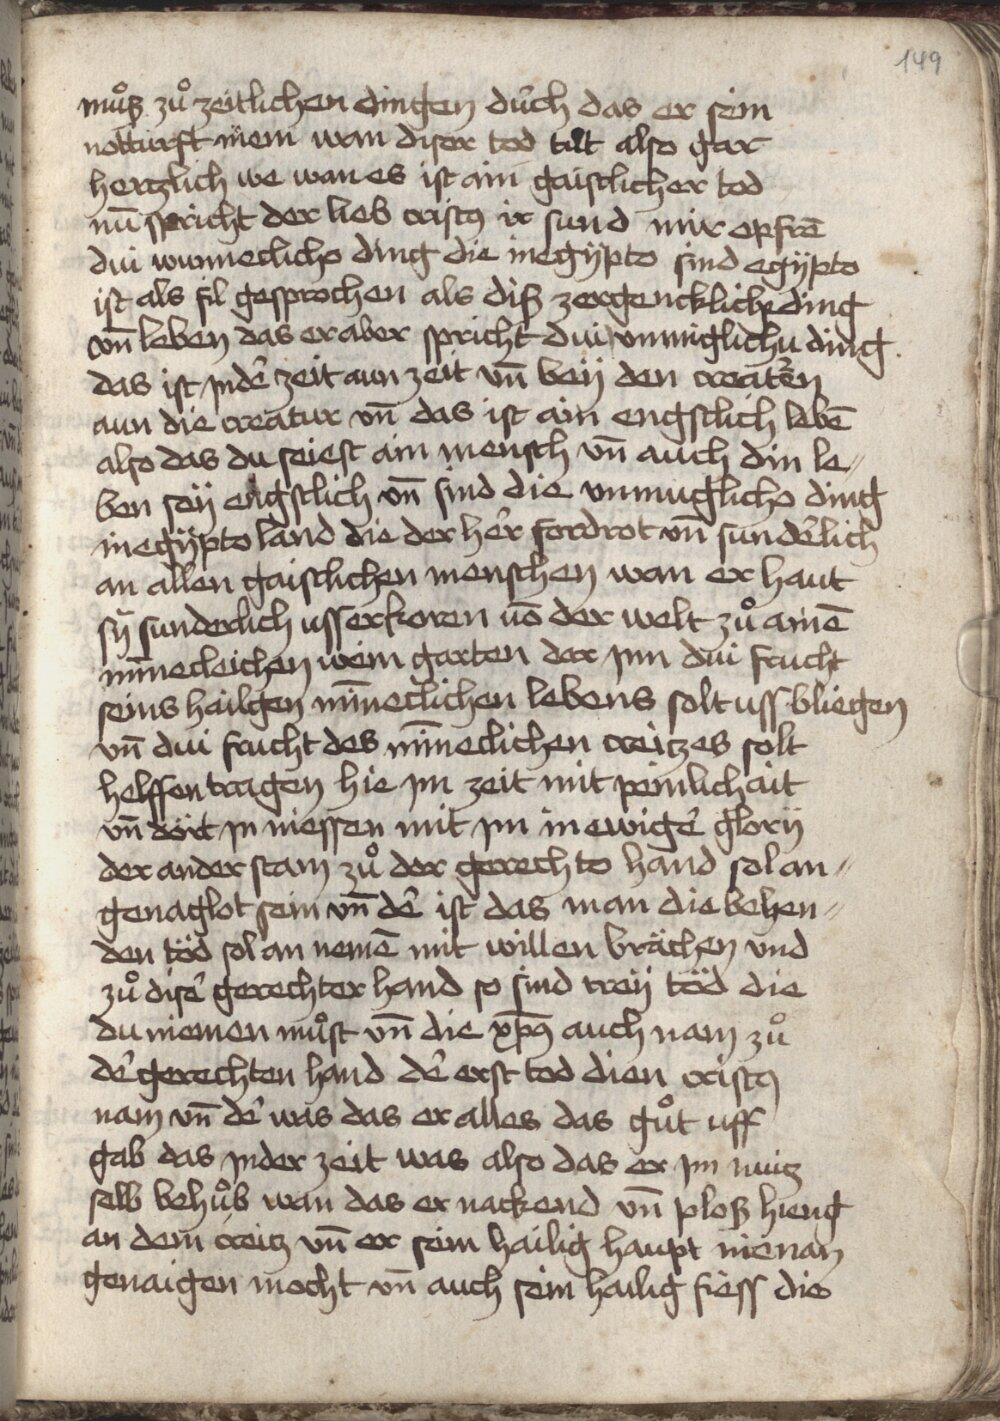 149
muͦß zuͦ zeitlichen dingen durch das er sein
notturft niem wan diser tod tůt also gar
hertzlich we wan es ist ain gaistlicher tod
nū spricht der lieb cristꝯ ir sund mir opfrē
dui wunneclicho ding die in egÿpto sind egÿpto
ist als fil gesprochen als diß zergencklich ding
vn̄ leben das er aber spricht dui vnmiglichu ding
das ist in der zeit aun zeit vn̄ beÿ den creaturen
aun die creatur vn̄ das ist ain engstlich lebē
also das du seiest ain mensch vn̄ auch din le〃
ben seÿ engstlich vn̄ sind die vnmuglicho ding
in egÿpto land die der her fordrot vn̄ sunderlich
an allen gaistlichen menschen wan er haut
sÿ sunderlich usserkoren vō der welt zuͦ ainē
minecleichen wein garten dar jnn dui frucht
seins hailgen mineclichen lebens solt uss bliegen
vn̄ dui frucht des mineclichen creitzes solt
helffen tragen hie jn zeit mit peinlichait
vn̄ dört jn niessen mit jm in ewiger glorÿ
der ander stam zuͦ der gerechto hand sol an〃
genaglot sein vn̄ der ist das man die behen〃
den töd sol an nemē mit willen brächen vnd
zuͦ diser gerechter hand so sind treÿ töd die
du niemen muͦst vn̄ die xp̄ꝯ auch nam zuͦ
der gerechten hand der erst tod dien cristꝯ
nam vn̄ der was das er alles das guͦt uff
gab das jn der zeit was also das er jm nutz
selb behuͦb wan das er nackend vn̄ ploß hieng
an dem creitz vn̄ er sein hailig haupt nienan
genaigen mocht vn̄ auch sein hailig fiess die